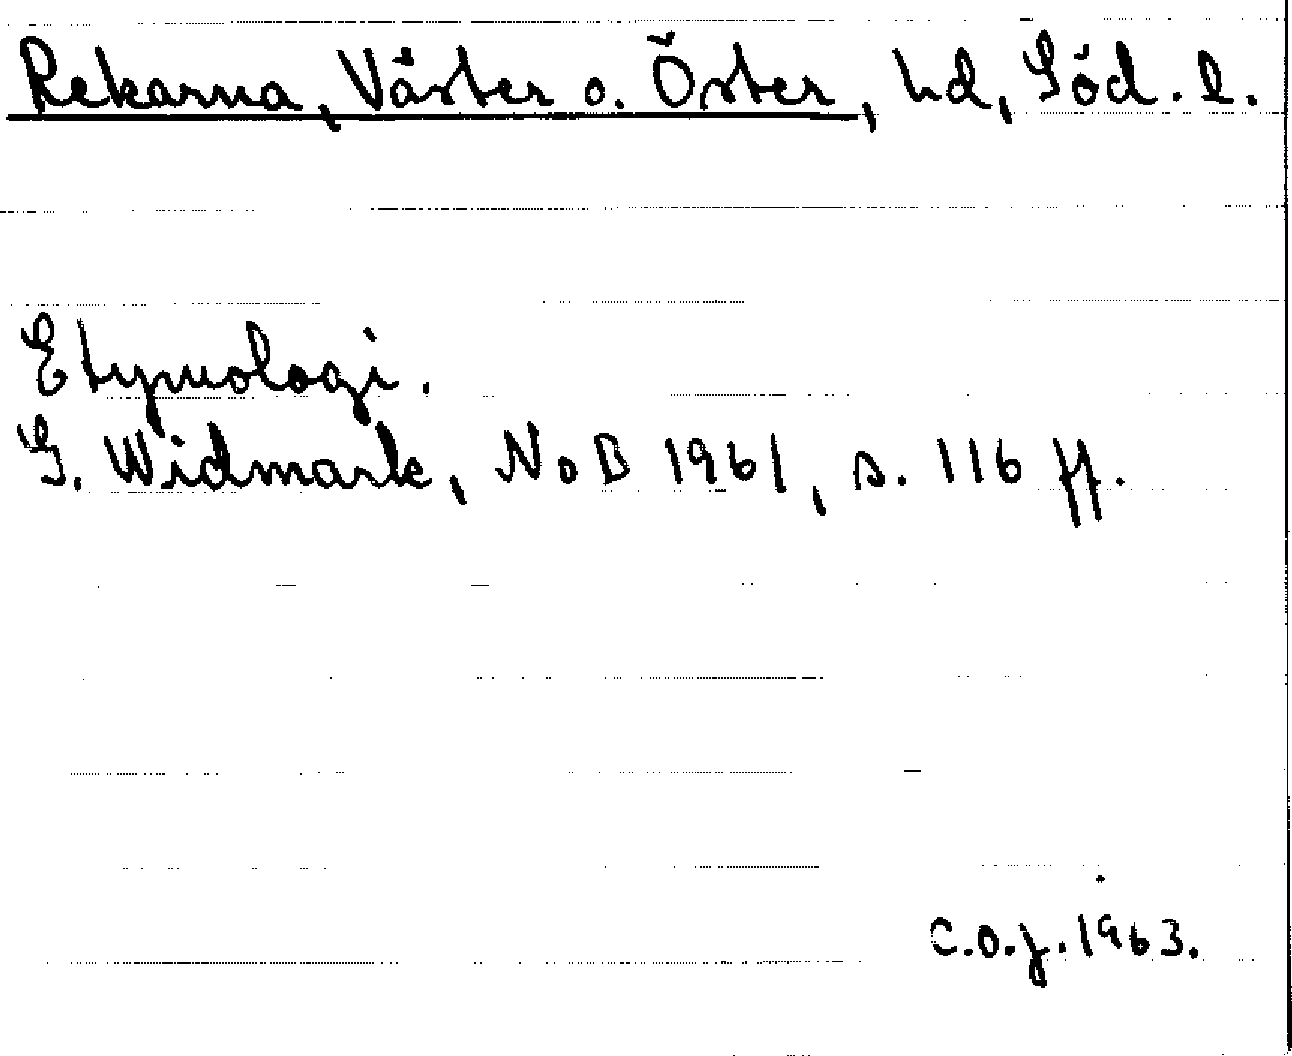 Rekarna, Väster o. Öster, hd, Söd. l.
Etymologi.
G. Widmark, NoB 1961, s. 116 ff.
C.O.J. 1963.